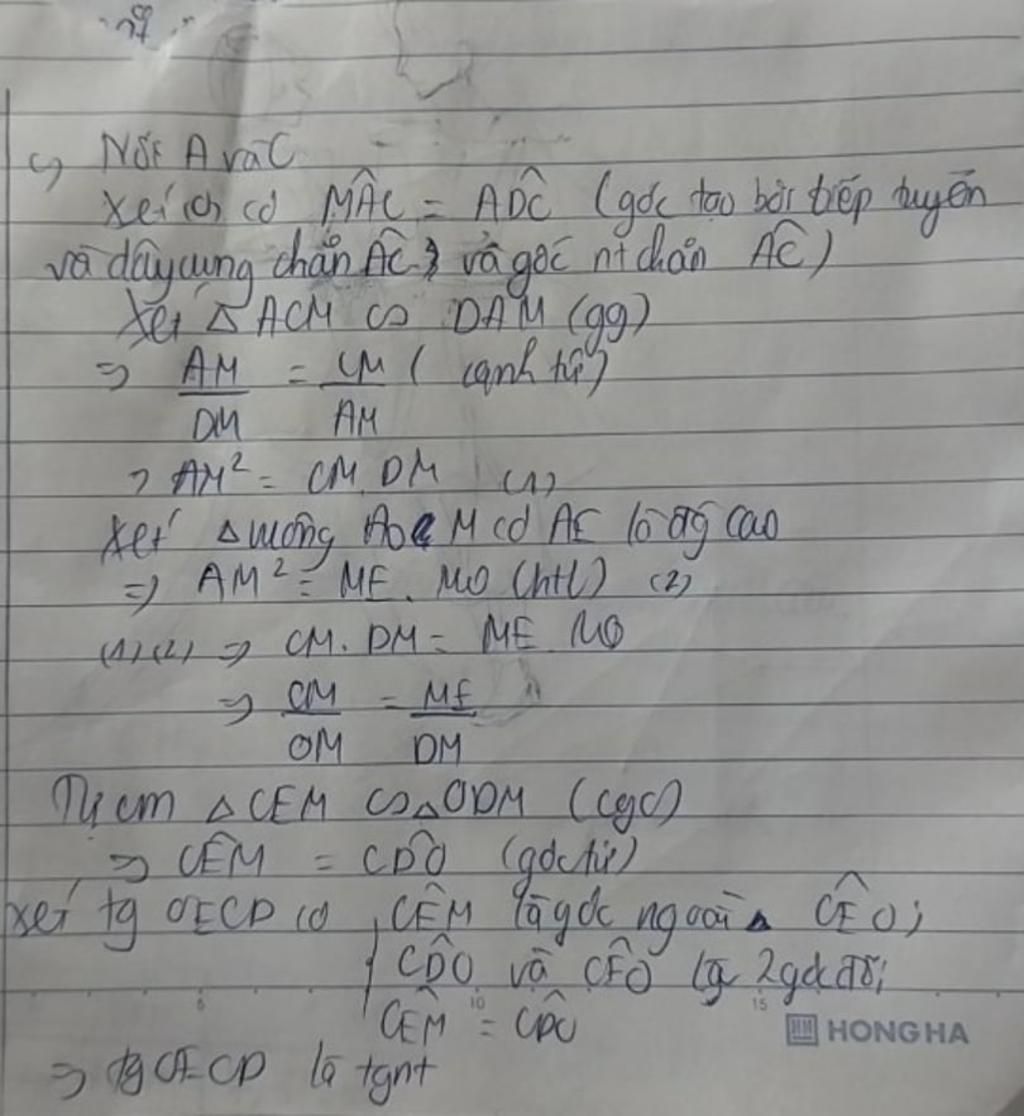 c, Nối A và C
Xét (O) có MÂC = ADC (góc tạo bởi tiếp tuyến
và dây cung chắn AC và góc nt chắn AC)
Xét △ ACM ∽ DAM (gg)
⇒ AM/DM = CM/AM (cạnh tứ)
⇒ AM² = CM. DM (1)
Xét △ vuông AOM có AE là đg cao
⇒ AM² = ME. MO (htl) (2)
(1)(2) ⇒ CM. DM = ME. MO
⇒ CM/OM = ME/DM
Tự cm △ CEM ∽ △ ODM (cgc)
⇒ CÊM = CDO (góc tứ)
Xét tg OECD có CÊM là góc ngoài CÊO;
CDO và CÊO là 2 góc đối;
CÊM = CDO
⇒ tg OECD là tgnt
10
15
HONG HA